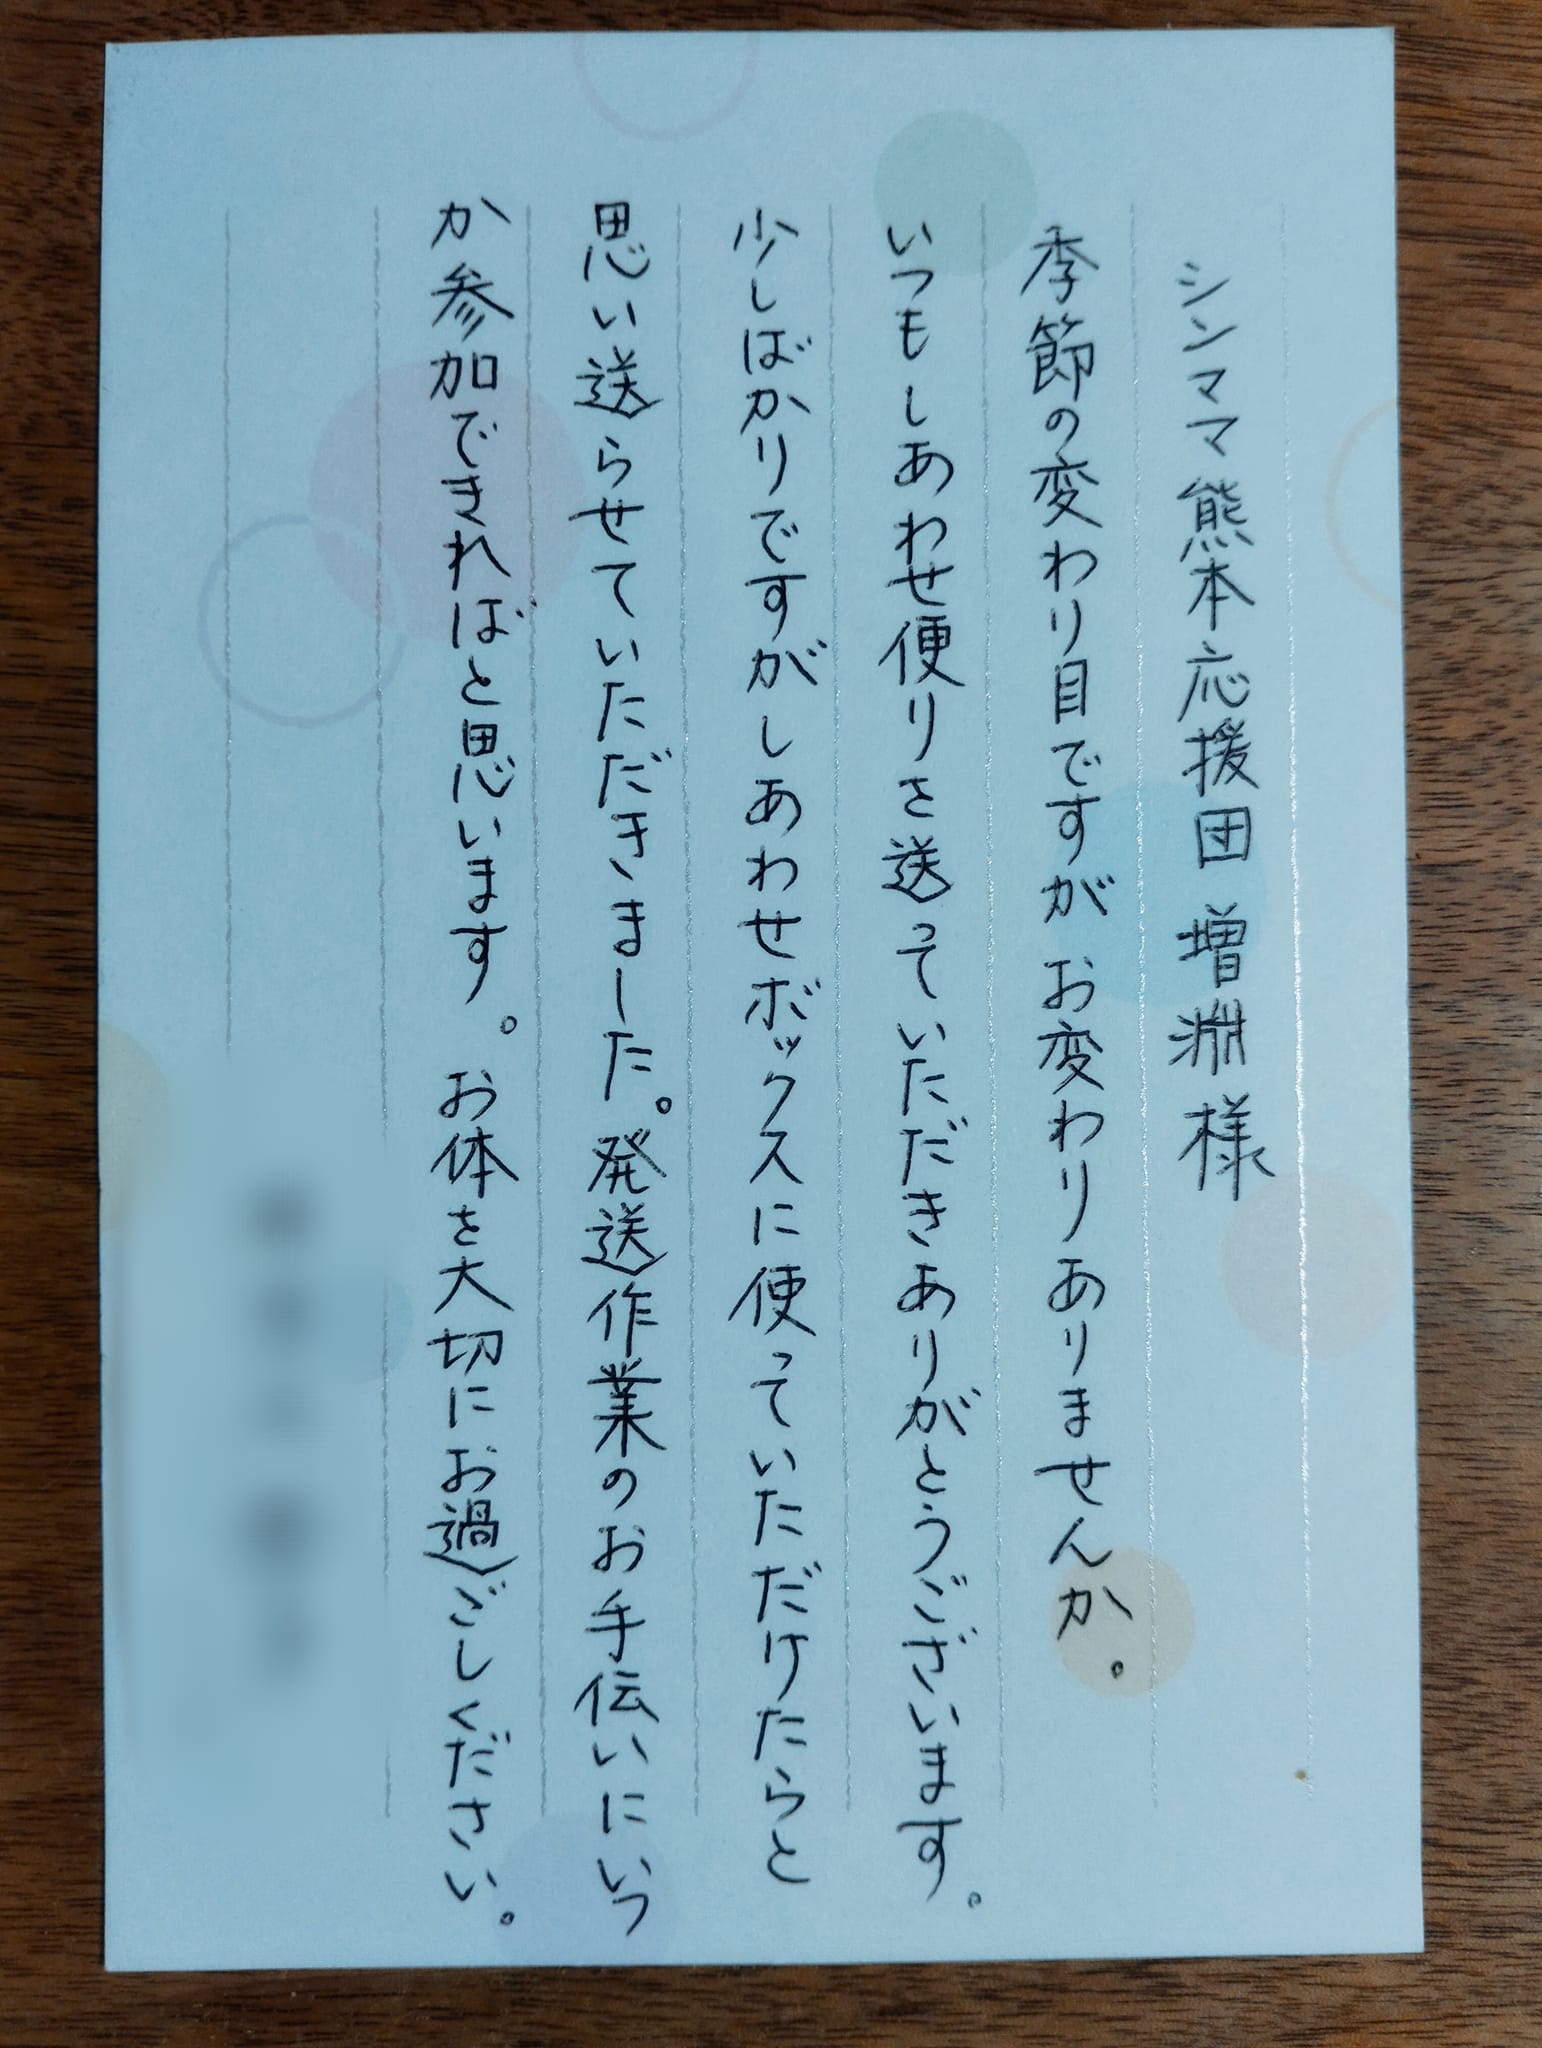 シンママ熊本応援団 増淵 様
季節の変わり目ですが お変わりありませんか。
いつもしあわせ便りを送っていただきありがとうございます。
少しばかりですがしあわせボックスに使っていただけたらと
思い送らせていただきました。発送作業のお手伝いにいつ
か参加できればと思います。お体を大切にお過ごしください。